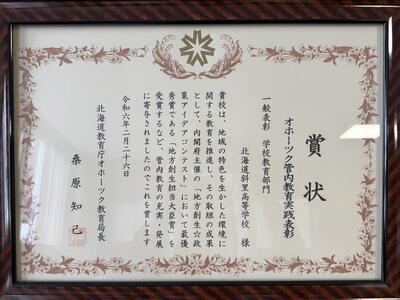 賞状
オホーツク管内教育実践表彰
一般表彰 学校教育部門
北海道斜里高等学校 様
貴校は、地域の特色を生かした環境に
関する教育を推進し、その取組の成果
として、内閣府主催の「地方創生☆政
策アイデアコンテスト」において最優
秀賞である「地方創生担当大臣賞」を
受賞するなど、管内教育の充実・発展
に寄与されましたのでこれを賞します
令和六年二月二十六日
北海道教育庁オホーツク教育局長
桑原知己